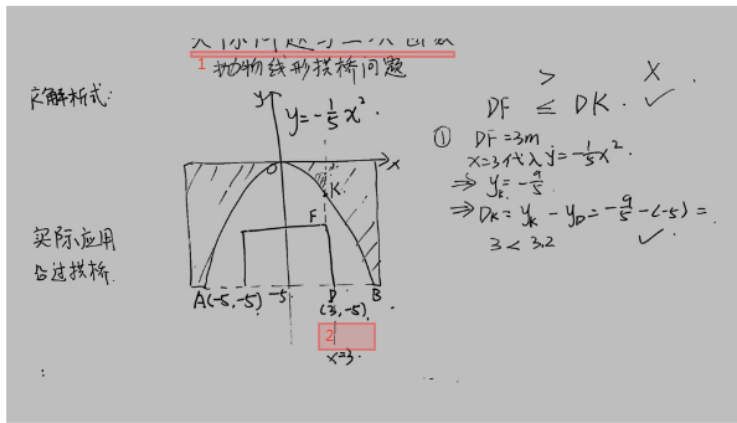 实际问题与二次函数
1 抛物线形拱桥问题
求解析式:
y
y=-1/5x².
O
x
K
F
实际应用
否过拱桥.
A(-5,-5)
-5
D
B
(3,-5).
2
x=3.
> X .
DF ≤ DK . ✓
① DF=3m
x=3代入y=-1/5x².
⇒ yₖ=-9/5.
⇒ DK=yₖ-y_D=-9/5-(-5)=
3<3.2 ✓.